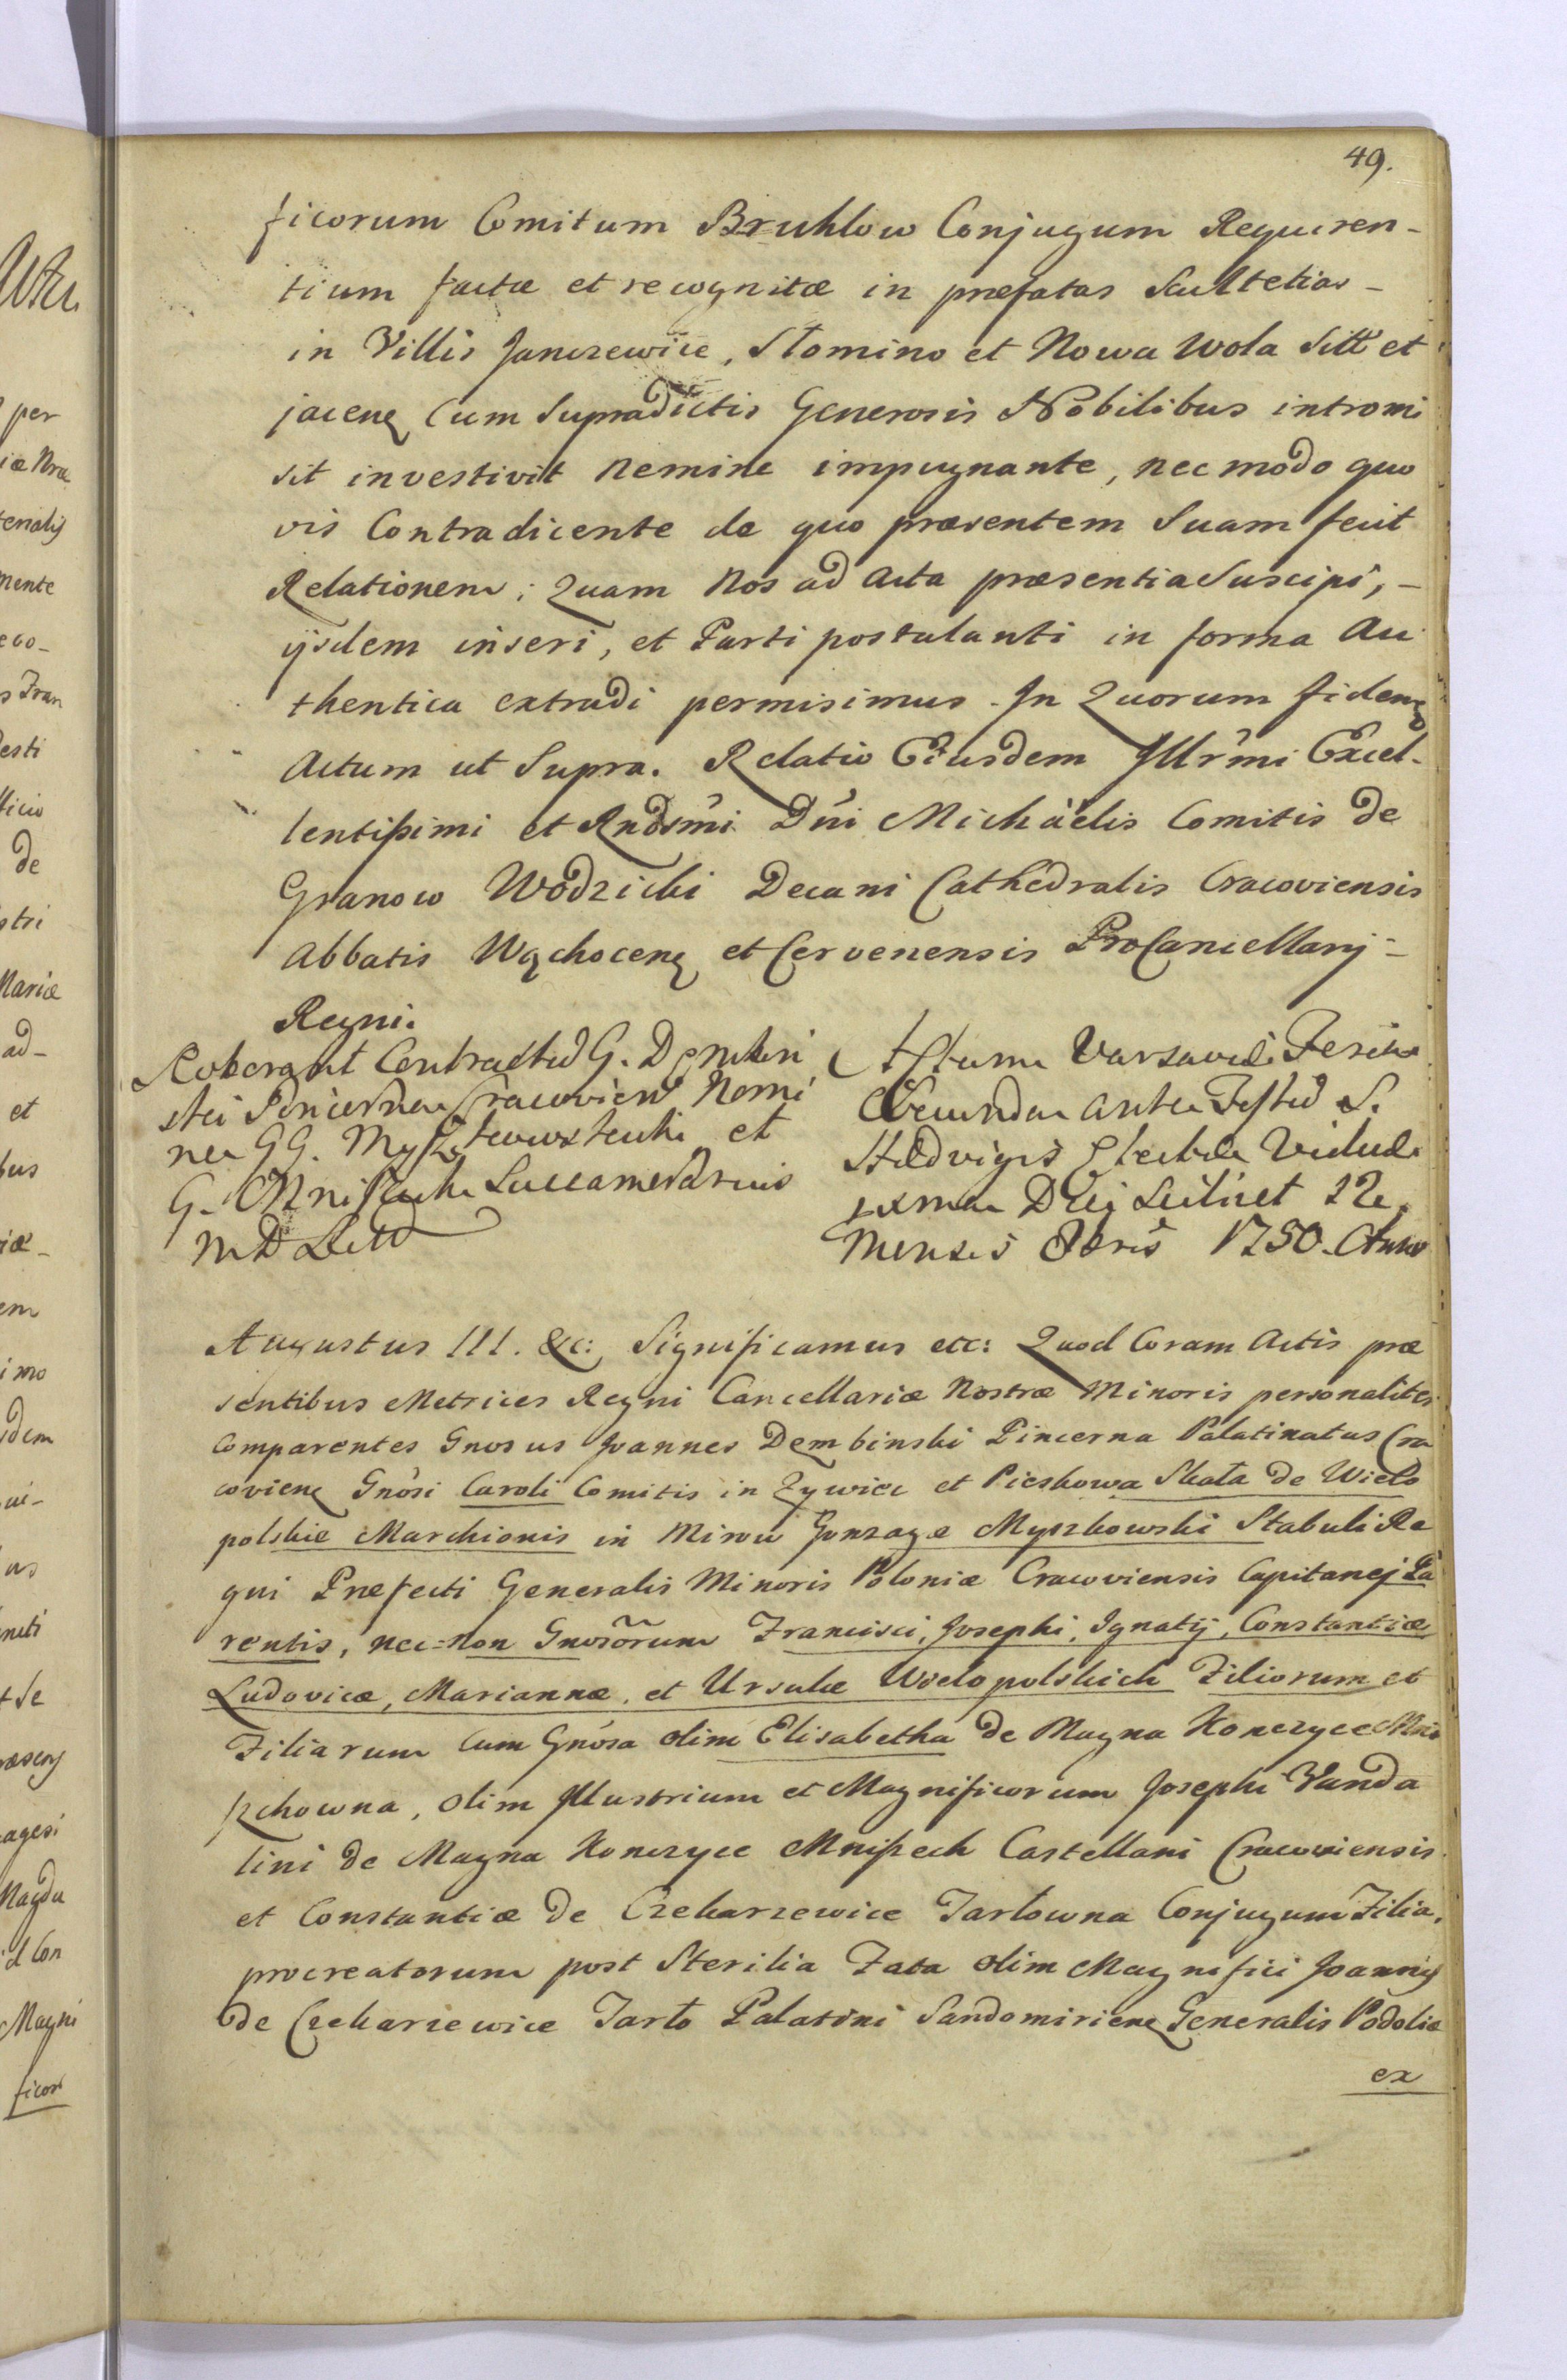 49.
ficorum Comitum Bruhlow Conjugum Requiren-
tium factæ et recognitæ in præfatas Scultetias -
in Villis Janczewice, Słomino et Nowa Wola Sitt et
jacenę Cum Supradictis Generosis Nobilibus intromi
sit investivit nemine impugnante, nec modo quo
vis Contradicente de quo præsentem Suam fecit
Relationem; Quam Nos ad Acta præsentia Suscipi, -
ijsdem inseri, et Parti postulanti in forma Au
thentica extradi permisimus. In Quorum fidem
Actum ut Supra. Relatio Eiusdem Illrmi Excel-
lentißimi et Rndsmi Dni Michäelis Comitis de
Granow Wodzicki Decani Cathedralis Cracoviensis
Abbatis Wąchocenę et Cervenensis ProCancellarij -
Regni.
Roborant Contractus G. Dembin
ski Pincerna Cracovien Nomi
ne GG. et
G. Succamerarius
M D Litt
Actum Varsaviæ Feria
Secunda ante Festum S.
Hedvigis Electæ Viduæ
Die Scilicet 12
Mensis 8bris 1750. Anno
Augustus III. &c: Significamus etc: Quod Coram Actis præ
sentibus Metrices Regni Cancellariæ Nostræ Minoris personaliter
Comparentes Gnosus Joannes Dembinski Pincerna Palatinatus Cra
covienę Gnosi Caroli Comitis in Zywiec et Pieskowa Skała de Wielo
polskie Marchionis in Mirow Gonzaga Myszkowski Stabuli Re
gni Præfecti Generalis Minoris Poloniæ Cracoviensis Capitanej Pa
rentis, nec-non Gnosorum Francisci, Josephi, Ignatij, Constantiæ
Ludovicæ, Mariannæ, et Ursulæ Wielopolskich Filiorum et
Filiarum Cum Gnosa olim Elisabetha de Magna Konczyce Mni
szchowna, olim Illustrium et Magnificorum Josephi Vanda
lini de Magna Konczyce Mniszech Castellani Cracoviensis
et Constantiæ de Czekarzewice Tarłowna Conjugum Filia,
procreatorum post Sterilia Fata olim Magnifici Joannis
de Czekarzewice Tarło Palatini Sandomirienę Generalis Podoliæ
ex